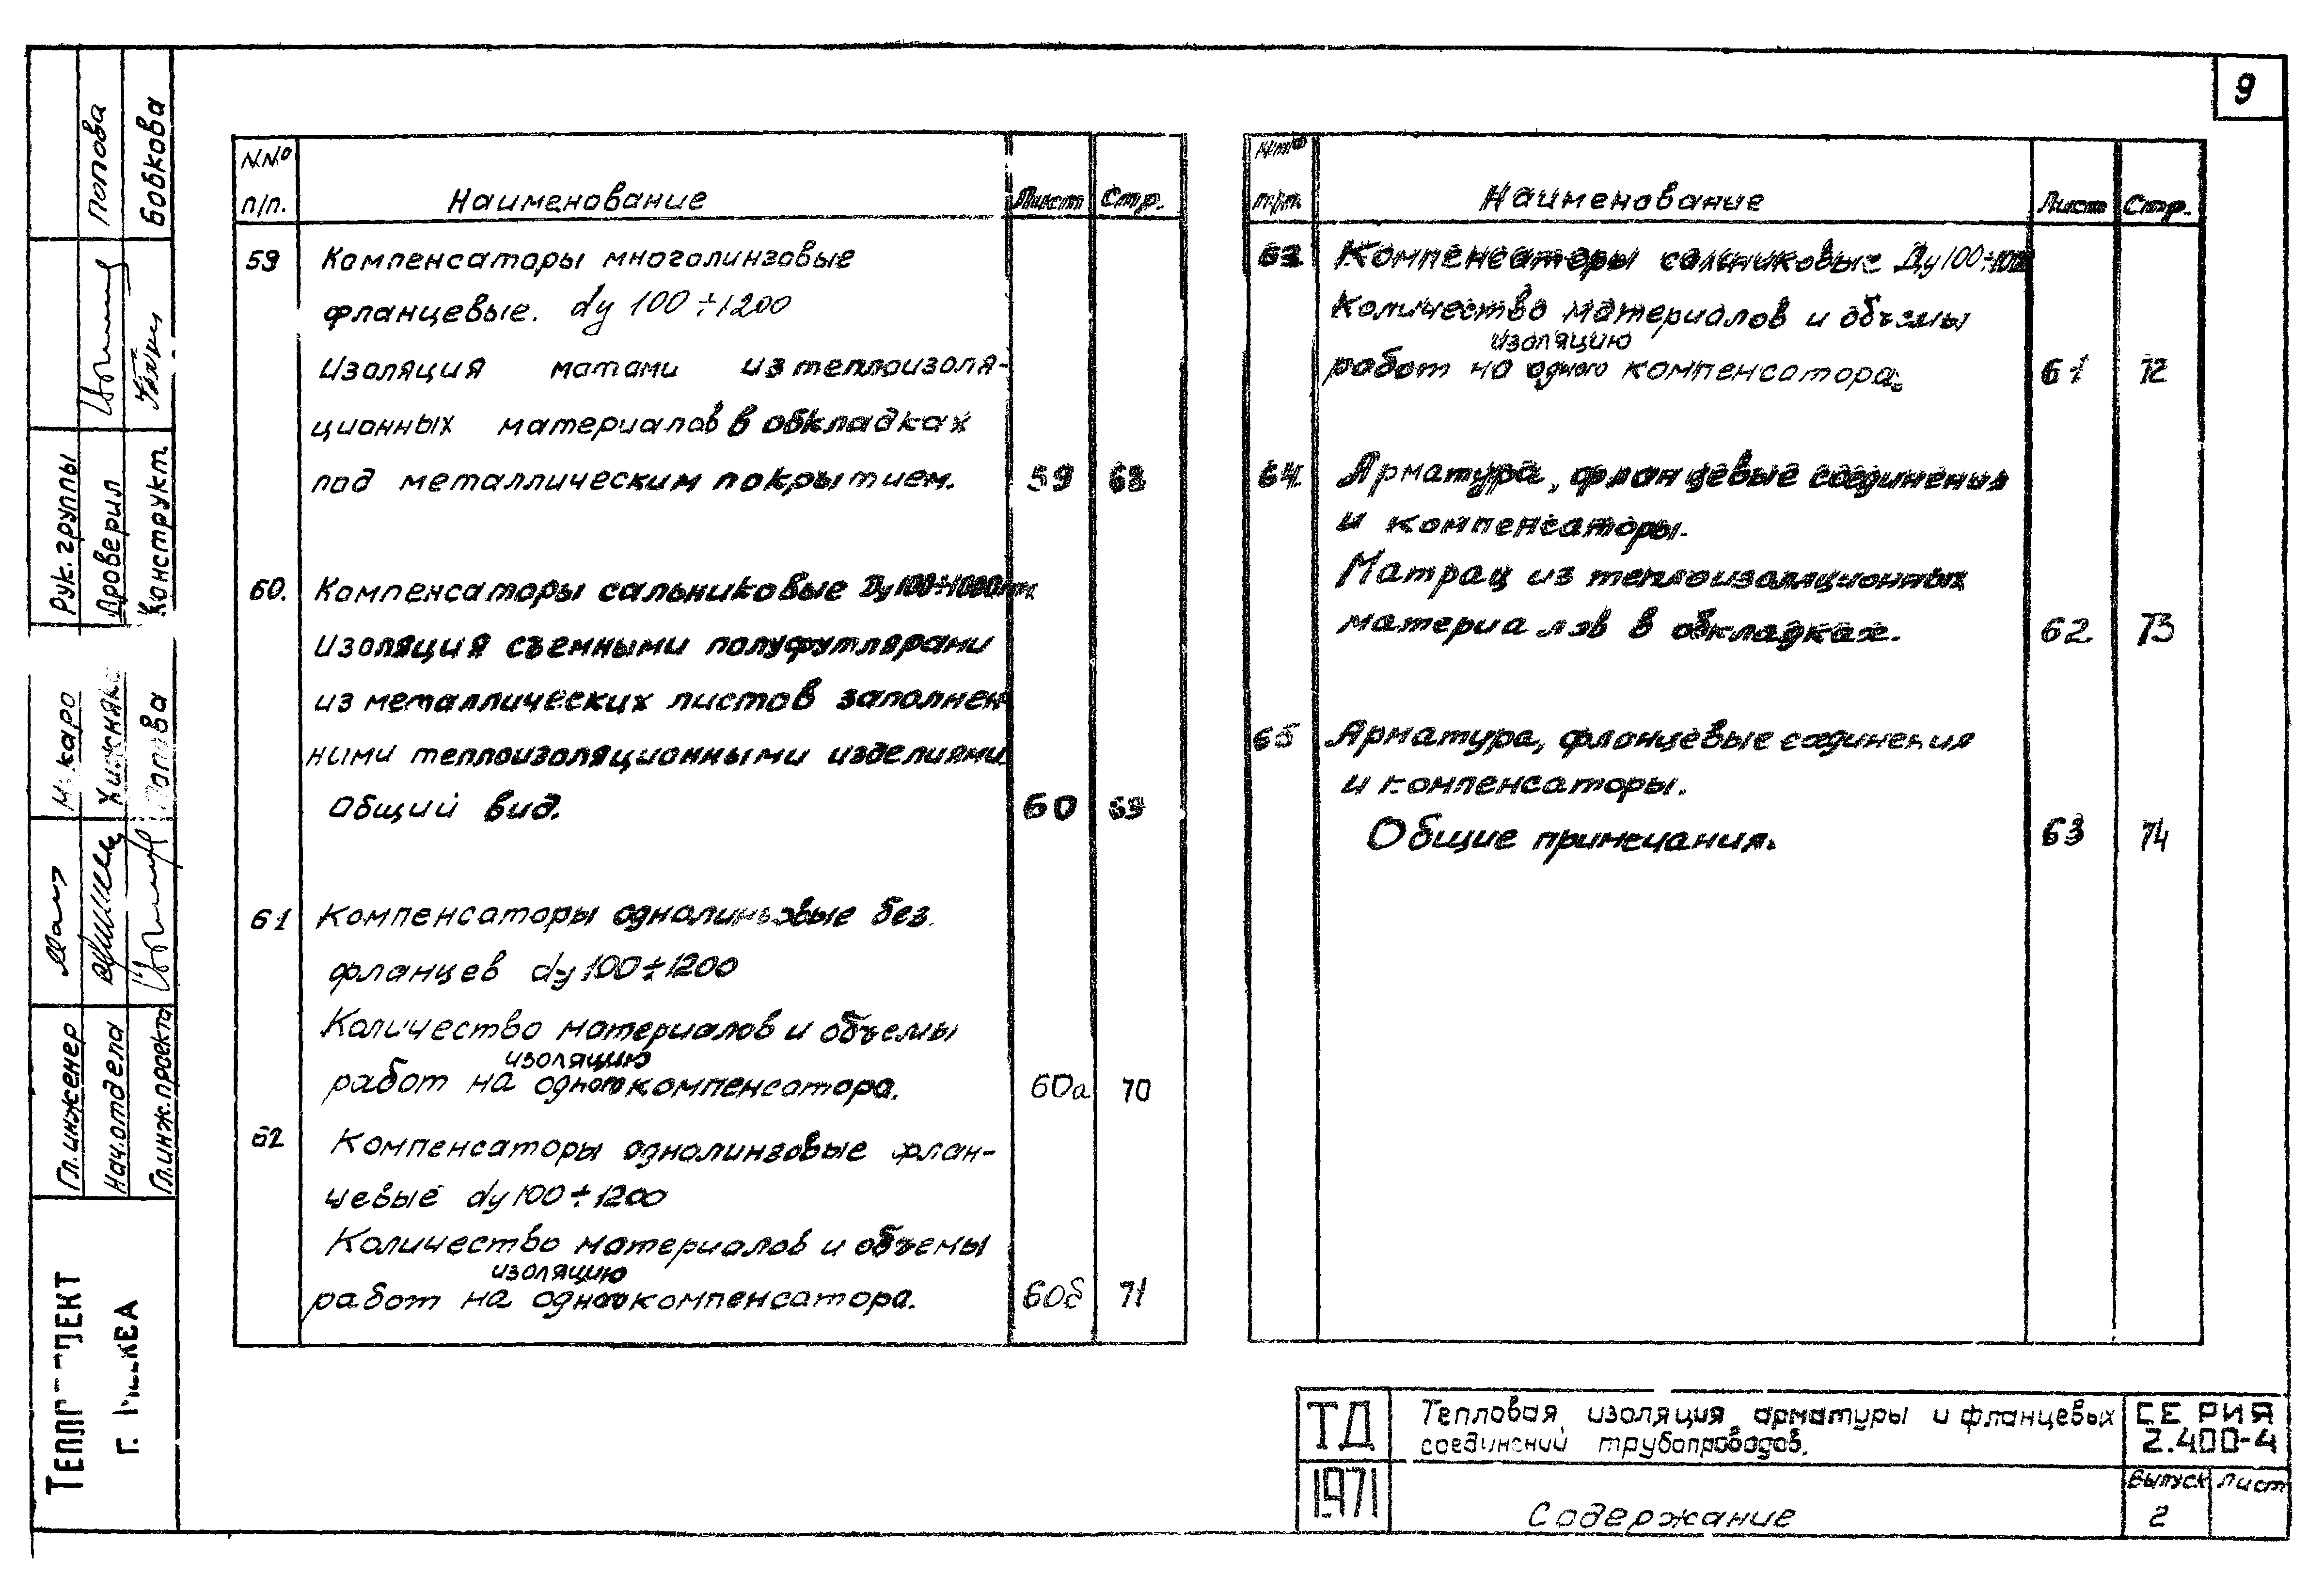 9
N.Nº
п/п.
Наименование
Лист
Стр.
59
Компенсаторы многолинзовые
фланцевые. dy 100÷1200
Изоляция матами из теплоизоля-
ционных материалов в обкладках
под металлическим покрытием.
59
68
60.
Компенсаторы сальниковые Ду100÷1000мм
изоляция съемными полуфутлярами
из металлических листов заполнен
ными теплоизоляционными изделиями
Общий вид.
60
69
61
Компенсаторы однолинзовые без
фланцев dy 100÷1200
Количество материалов и объемы
изоляцию
работ на одного компенсатора.
60а
70
62
Компенсаторы однолинзовые флан-
цевые dy 100÷1200
Количество материалов и объемы
изоляцию
работ на одного компенсатора.
60б
71
п/п.
Наименование
Лист
Стр.
63
Компенсаторы сальниковые
Количество материалов и объемы
изоляцию
работ на одного компенсатора.
61
72
64.
Арматура, фланцевые соединения
и компенсаторы.
Матрац из теплоизоляционных
материалов в обкладках.
62
73
65
Арматура, фланцевые соединения
и компенсаторы.
Общие примечания.
63
74
ТД
1971
Тепловая изоляция арматуры и фланцевых
соединений трубопроводов.
Содержание
СЕРИЯ
2.400-4
Выпуск
Лист
2
Попова
Бобкова
Рук. группы
Проверил
Конструкт.
Попова
Гл.инженер
Нач.отдела
Гл.инж.проекта